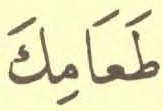 طَعَامِكَ